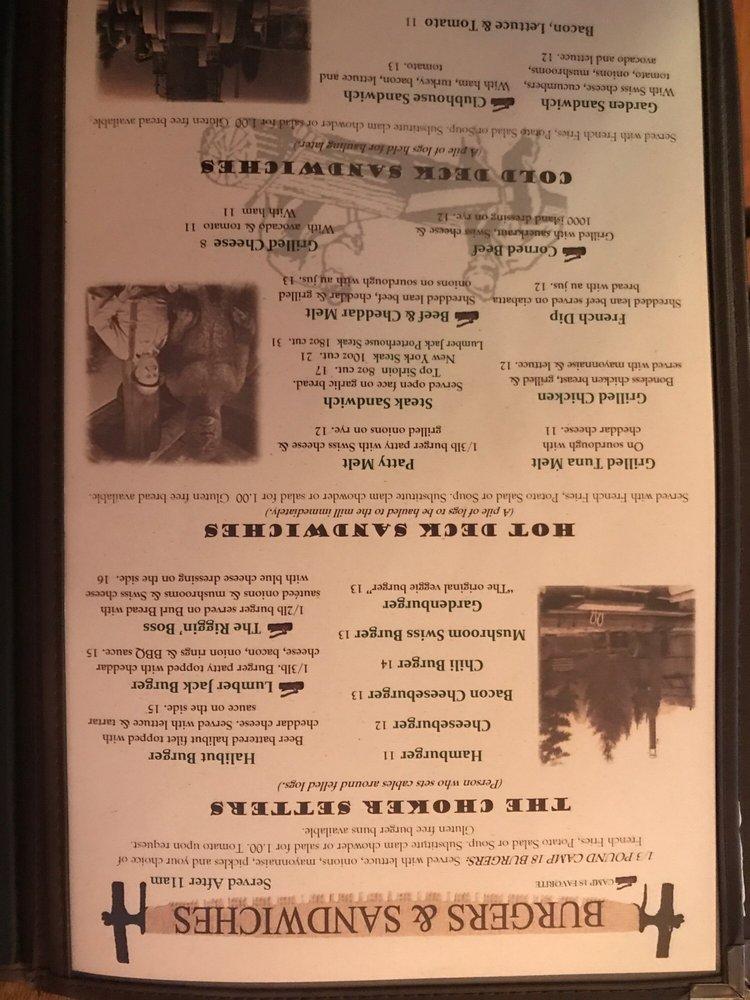 BURGERS & SANDWICHES
CAMP 18 FAVORITE
Served After 11am
1/3 POUND CAMP 18 BURGERS: Served with lettuce, onions, mayonnaise, pickles and your choice of
French Fries, Potato Salad or Soup. Substitute clam chowder or salad for 1.00. Tomato upon request.
Gluten free burger buns available.
THE CHOKER SETTERS
(Person who sets cables around felled logs.)
Hamburger 11
Cheeseburger 12
Bacon Cheeseburger 13
Chili Burger 14
Mushroom Swiss Burger 13
Gardenburger
"The original veggie burger" 13
Halibut Burger
Beer battered halibut filet topped with
cheddar cheese. Served with lettuce & tartar
sauce on the side. 15
Lumber Jack Burger
1/3lb. Burger patty topped with cheddar
cheese, bacon, onion rings & BBQ sauce. 15
The Riggin' Boss
1/2lb burger served on Burl Bread with
sauteed onions & mushrooms & Swiss cheese
with blue cheese dressing on the side. 16
HOT DECK SANDWICHES
(A pile of logs to be hauled to the mill immediately.)
Served with French Fries, Potato Salad or Soup. Substitute clam chowder or salad for 1.00 Gluten free bread available.
Grilled Tuna Melt
On sourdough with
cheddar cheese. 11
Grilled Chicken
Boneless chicken breast, grilled &
served with mayonnaise & lettuce. 12
French Dip
Shredded lean beef served on ciabatta
bread with au jus. 12
Corned Beef
Grilled with sauerkraut, Swiss cheese &
1000 island dressing on rye. 12
Patty Melt
1/3lb burger patty with Swiss cheese &
grilled onions on rye. 12
Steak Sandwich
Served open face on garlic bread.
Top Sirloin 8oz cut. 17
New York Steak 10oz cut. 21
Lumber Jack Porterhouse Steak 18oz cut. 31
Beef & Cheddar Melt
Shredded lean beef, cheddar & grilled
onions on sourdough with au jus. 13
Grilled Cheese 8
With avocado & tomato 11
With ham 11
COLD DECK SANDWICHES
(A pile of logs for held for hauling later.)
Served with French Fries, Potato Salad or Soup. Substitute clam chowder or salad for 1.00 Gluten free bread available.
Garden Sandwich
With Swiss cheese, cucumbers,
tomato, onions, mushrooms,
avocado and lettuce. 12
Clubhouse Sandwich
With ham, turkey, bacon, lettuce and
tomato. 13
Bacon, Lettuce & Tomato 11